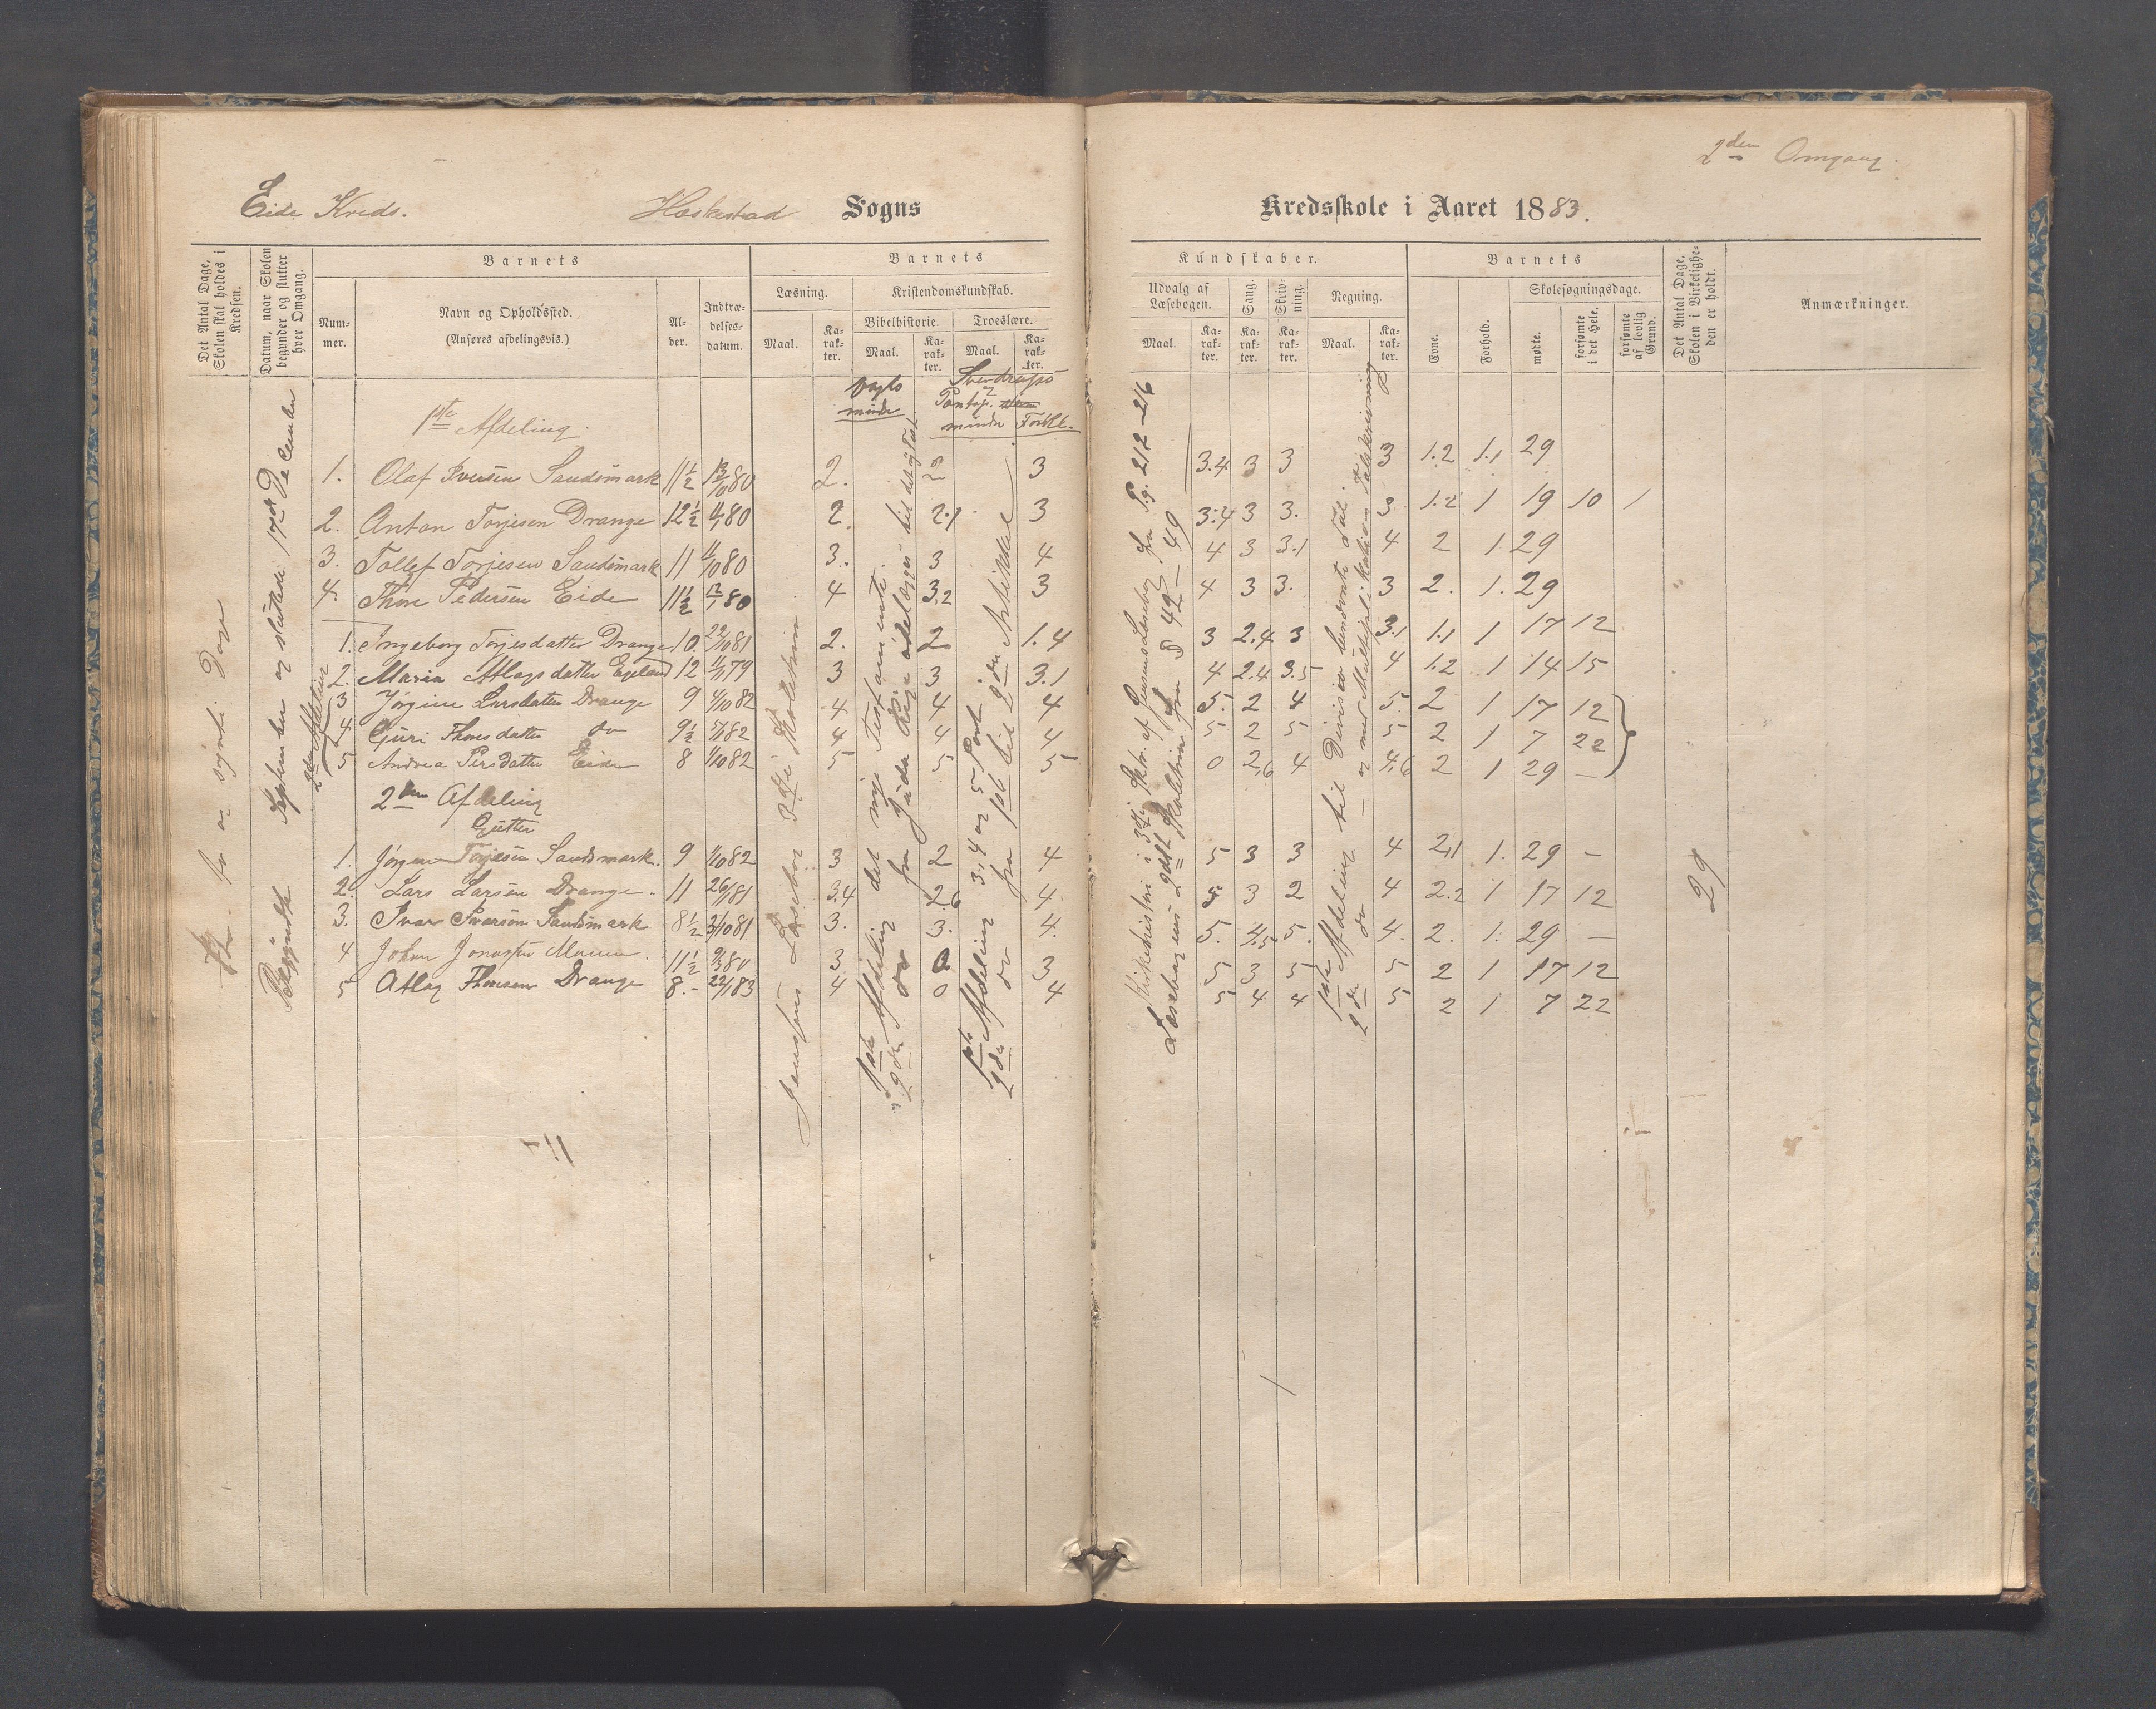 2den Omgang.
Eide Kreds. Heskestad Sogns Kredsskole i Aaret 1883.
Det Antal Dage, Skolen skal holdes i Kredsen.
Datum, naar Skolen begynder og slutter hver Omgang.
Barnets
Nummer.
Navn og Opholdssted.
(Anføres afdelingsvis.)
Alder.
Indtrædelsesdatum.
Barnets
Læsning.
Maal.
Karakter.
Kristendomskundskab.
Bibelhistorie.
Maal.
Karakter.
Troeslære.
Maal.
Karakter.
Kundskaber.
Udvalg af Læsebogen.
Maal.
Karakter.
Sang.
Karakter.
Skrivning.
Karakter.
Regning.
Maal.
Karakter.
Barnets
Evne.
Forhold.
Skolesøgningsdage.
mødte.
forsømte i det Hele.
forsømte af lovlig Grund.
Det Antal Dage, Skolen i Virkelighe-
den er holdt.
Anmærkninger.
Vogts mindre
Sverdrups
Pontop. mindre Forkl.
1ste Afdeling.
1. Olaf Iversen Sandsmark 11½ 13/10 80 2. 2 3 3.4 3 3 3 1.2 1.1 29
2. Anton Torjesen Drange 12½ 4/1 80 2. 2.1 3 3.4 3 3. 3. 1.2 1 19 10 1
3. Tollef Torjesen Sandsmark 11 11/10 80 3. 3 4 4 3 3.1 4 2 1. 29
4. Thore Pedersen Eide 11½ 12/1 80 4 3.2 3 4 3 3. 3 2. 1. 29
1. Ingeborg Torjesdatter Drange 10 22/10 81 2. 2 1.4 3 2.4 3 3.1 1.1 1 17 12
2. Maria Atlagsdatter Egeland 12 11/11 79 3 3 3.1 4 2.4 3.5 4 1.2 1 14 15
3 Jørgine Larsdatter Drange 9 4/10 82 4 4 4 5. 2 4 5. 2 1 17 12
4 Guri Thoresdatter do 9½ 5/1 82 4 4 4 5 2 5 5 2 1 7 22
5 Andrea Persdatter Eide 8 1/10 82 5 5 5 0 2.6 4 4.6 2 1 29 —
2den Afdeling
Gutter
1. Jørgen Torjesen Sandsmark. 9 1/10 82 3 2 4 5 3 3 4 2.1 1. 29 —
2. Lars Larsen Drange. 11 26/1 81 3.4 2.6 4. 5 3 2 4 2.2 1 17 12
3. Ivar Iversøn Sandsmark 8½ 3/10 81 3. 3. 4. 5. 4.5 5. 4. 2. 1. 29 —
4 Johan 11½ 9/3 80 3 0 3 5 3 5 5 2 1 17 12
5 Atlag Thoresen Drange 8.- 22/1 83 4 0 4 5 4 4 5 2 1 7 22
Begyndte September og sluttede 17de December
2den Afdeling
Jensens Læsebog 3die Skoletrin
1ste Afdeling det nye Testamente.
2den do fra Juda Rige ødelægges til det nye Test.
1ste Afdeling 3, 4 og 5 Part.
2den do fra 1ste til 2den Artikkel
Kirkehistori i 3die Skr. af Jensens Læsebog fra Pg. 212 - 216
Læsebogens 2det Skoletrin fra P 42 - 49
1ste Afdeling til Division ubenevnte Tal.
2den do — og med Multiplikation
29